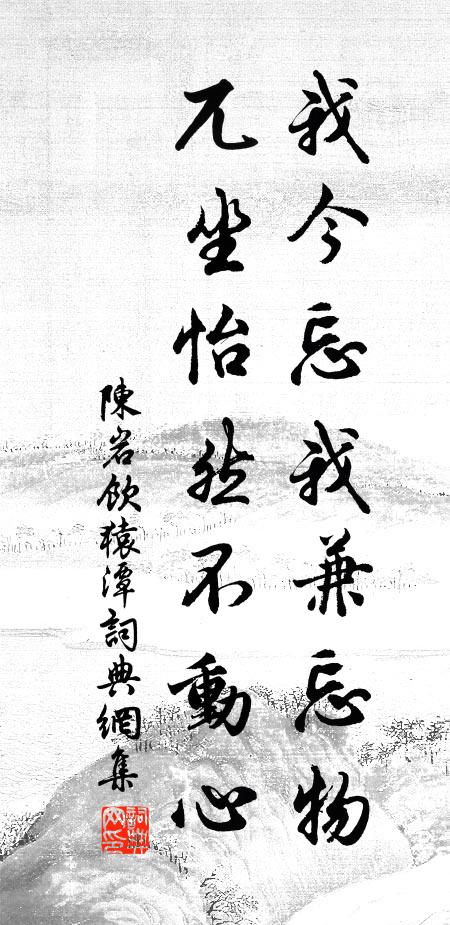 我今忘我兼忘物
兀坐怡然不動心
陳岩飲猿潭詞典網集